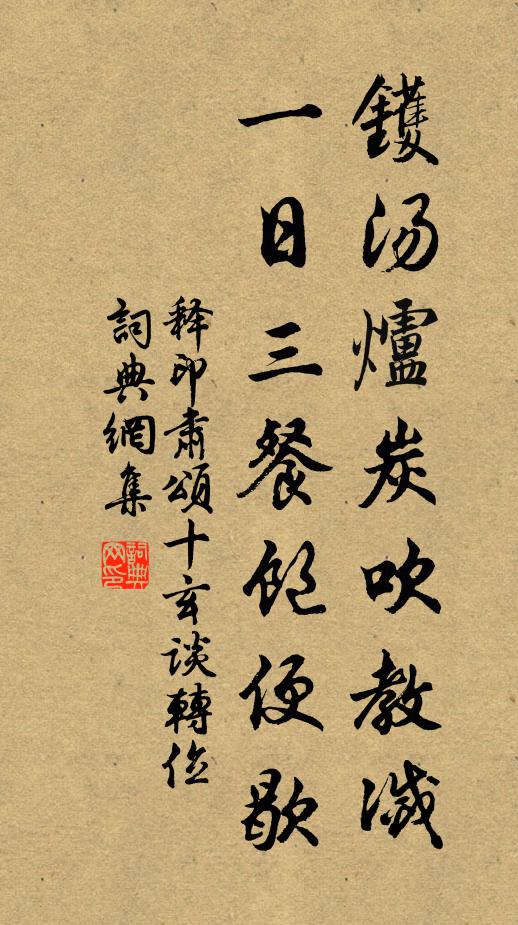 鑊湯爐炭吹教滅
一日三餐飽便歇
釋印肅頌十玄談轉位
詞典網集
詞典網印